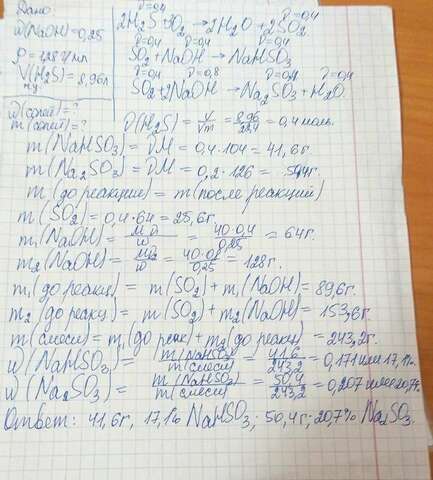 Дано
ω(NaOH)=0,25
ρ=1,28 г/мл
V(H₂S)=8,96л
н.у.
ω(солей)=?
m(солей)=?
ν=0,4 ν=0,4
2H₂S+3O₂→2H₂O+2SO₂
ν=0,4 ν=0,4 ν=0,4
SO₂+NaOH→NaHSO₃
ν=0,4 ν=0,8 ν=0,4
SO₂+2NaOH→Na₂SO₃+H₂O
ν(H₂S)=V/Vm=8,96/22,4=0,4моль.
m(NaHSO₃)=νM=0,4·104=41,6г.
m(Na₂SO₃)=νM=0,2·126=
m(до реакции)=m(после реакций)
m(SO₂)=0,4·64=25,6г.
m₁(NaOH)=Mν/ω=40·0,4/0,25=64г.
m₂(NaOH)=Mν/ω=40·0,8/0,25=128г.
m₁(до реакц)=m(SO₂)+m₁(NaOH)=89,6г.
m₂(до реакц)=m(SO₂)+m₂(NaOH)=153,6г.
m(смеси)=m₁(до реак)+m₂(до реакц)=243,2г.
ω(NaHSO₃)=m(NaHSO₃)/m(смеси)=41,6/243,2=0,171или 17,1%
ω(Na₂SO₃)=m(NaHSO₃)/m(смеси)=50,4/243,2=0,207или 20,7%
Ответ: 41,6г, 17,1% NaHSO₃; 50,4г; 20,7% Na₂SO₃.